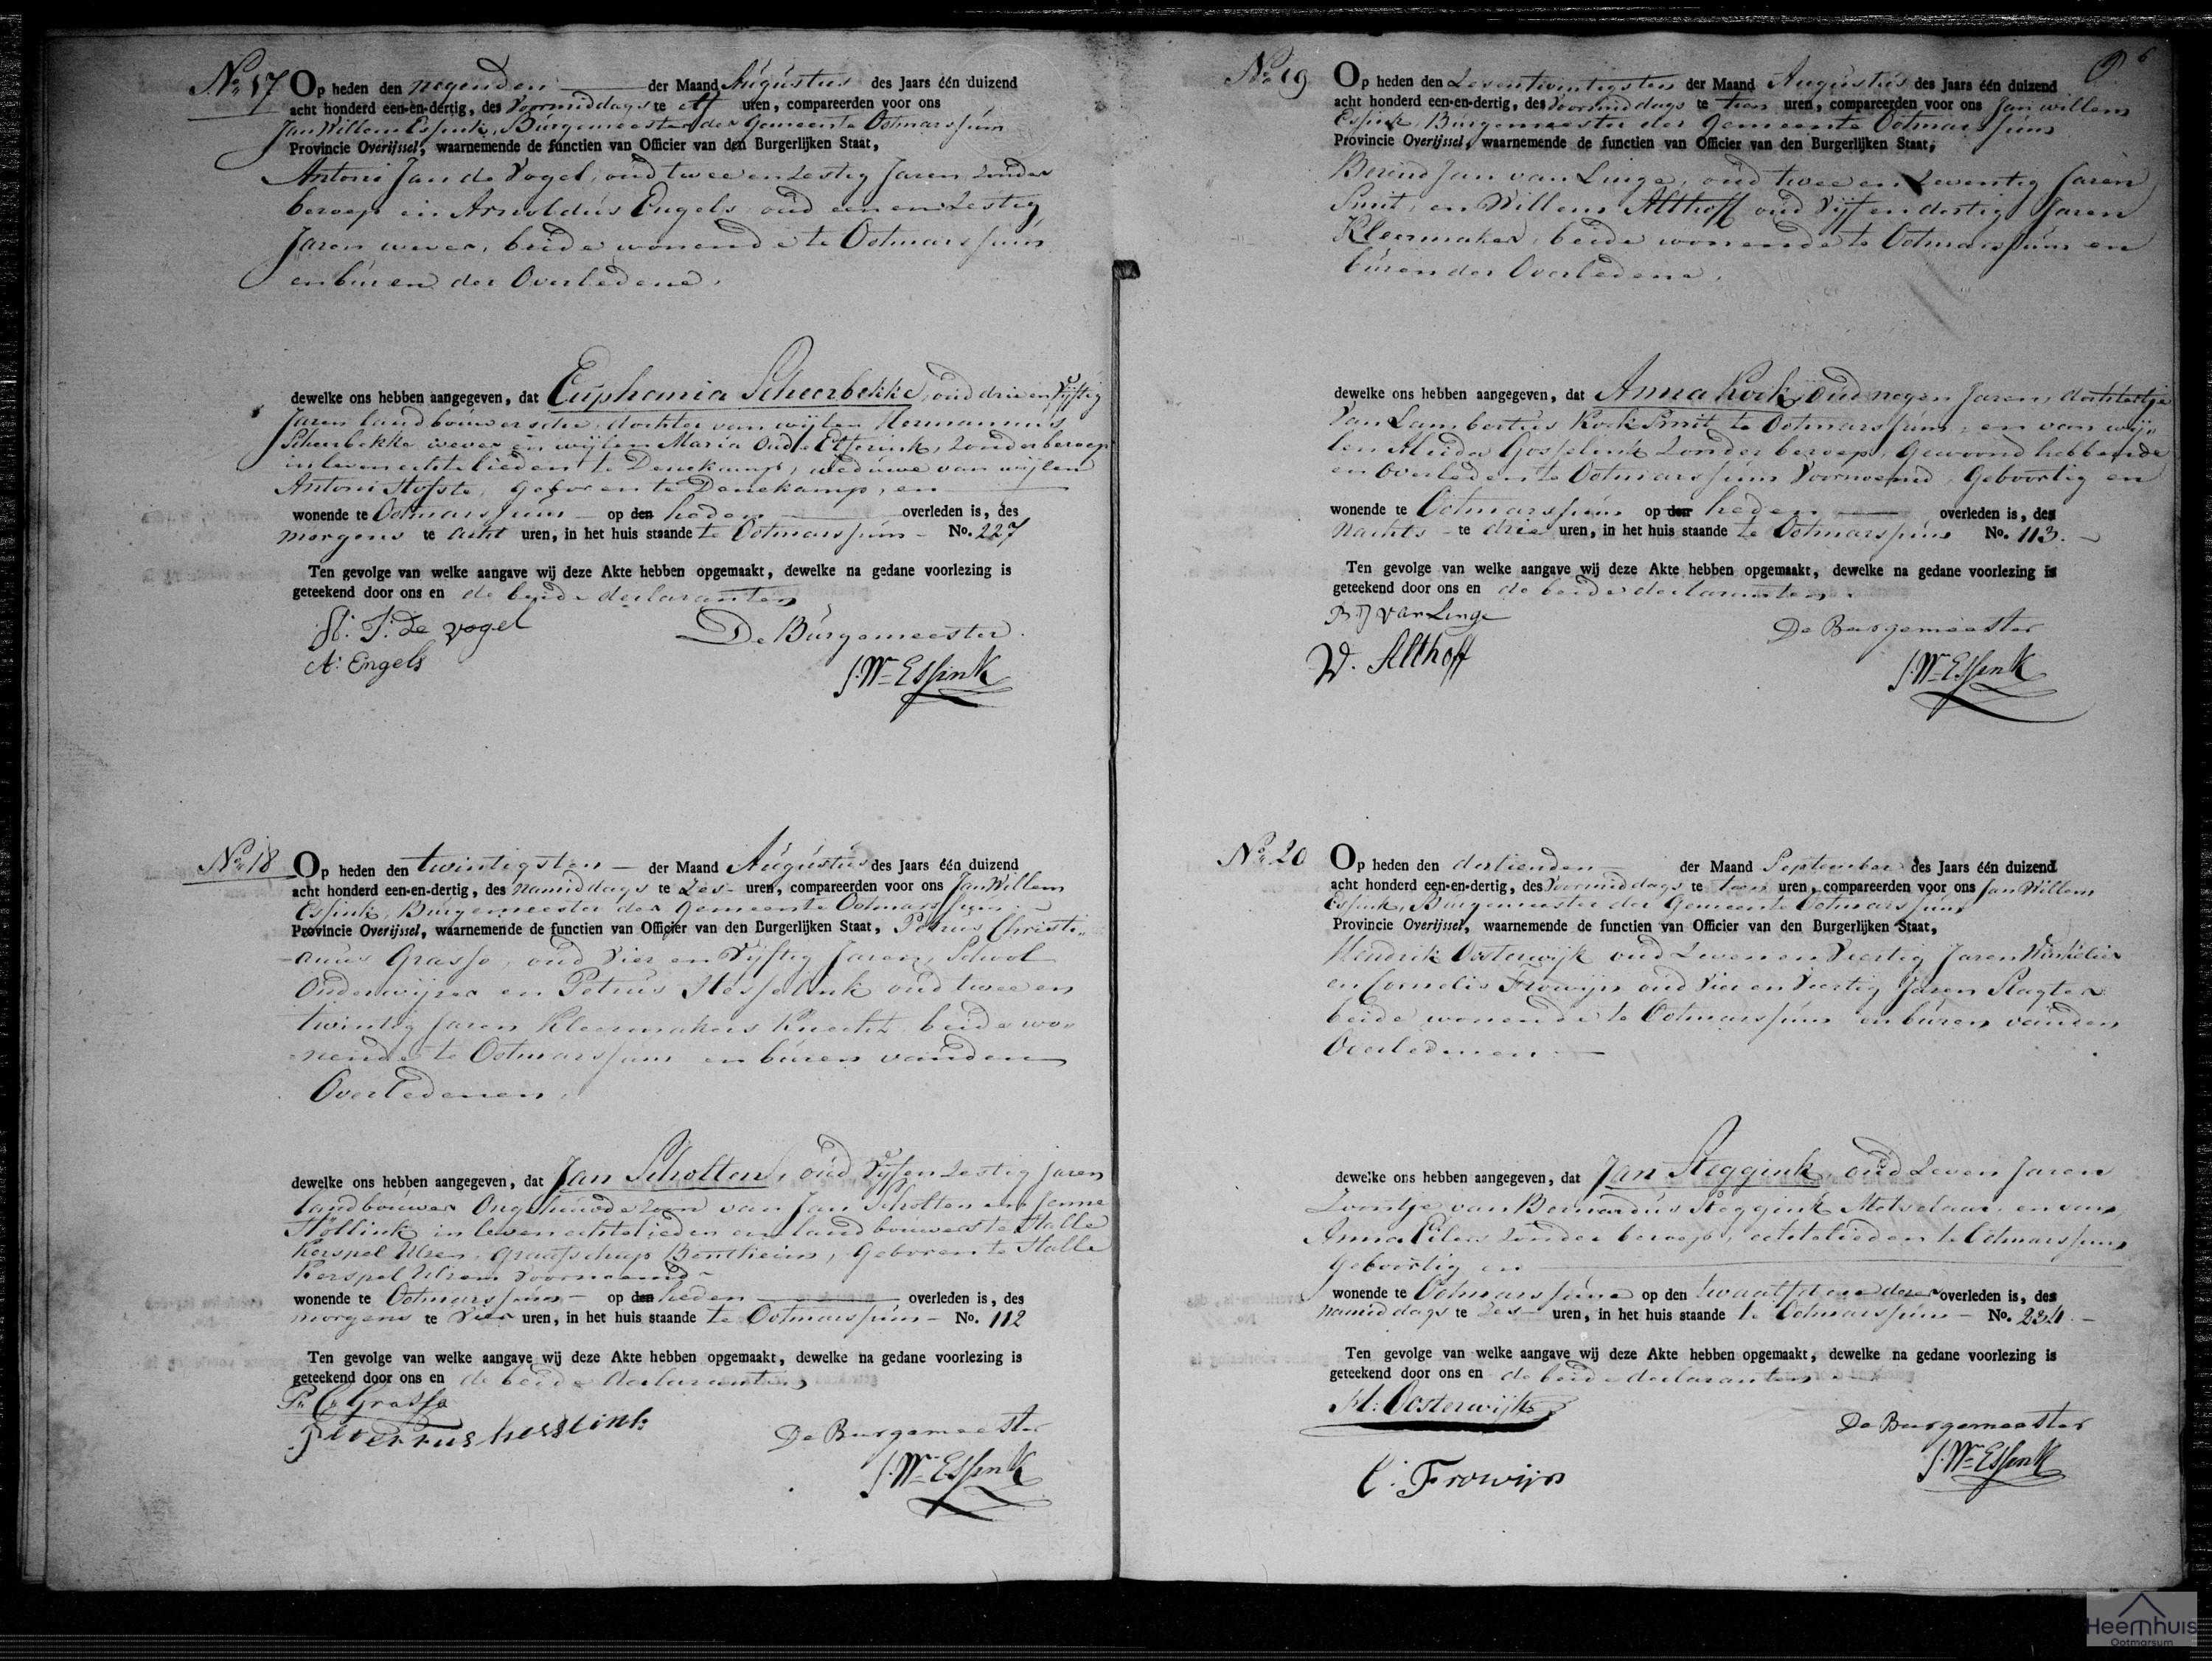 No. 17 Op heden den negenden der Maand Augustus des Jaars één duizend
acht honderd een-en-dertig, des Voormiddags te elf uren, compareerden voor ons
Jan Willem Essink, Burgemeester der Gemeente Ootmarssum
Provincie Overijssel, waarnemende de functien van Officier van den Burgerlijken Staat,
Antoni Jan de Vogel, oud twee en zestig Jaren zonder
beroep en Arnoldus Engels oud een en zestig
Jaren wever, beide wonende te Ootmarssum
en buren der Overledene.
dewelke ons hebben aangegeven, dat Euphemia Scheerbekke, oud drie en Vijftig
Jaren landbouwersche, dochter van wijlen Hermannus
Scheerbekke wever en wijlen Maria Oude Elferink, zonder beroep
in leven echtelieden te Denekamp, weduwe van wijlen
Antoni Hofste, geboren te Denekamp, en
wonende te Ootmarssum op den heden overleden is, des
morgens te acht uren, in het huis staande te Ootmarssum No. 227
Ten gevolge van welke aangave wij deze Akte hebben opgemaakt, dewelke na gedane voorlezing is
geteekend door ons en de beide declaranten
A. J. de vogel De Burgemeester
A. Engels
J. Wm Essink
No. 18 Op heden den twintigsten der Maand Augustus des Jaars één duizend
acht honderd een-en-dertig, des namiddags te zes uren, compareerden voor ons Jan Willem
Essink, Burgemeester der Gemeente Ootmarssum
Provincie Overijssel, waarnemende de functien van Officier van den Burgerlijken Staat, Petrus Christi-
anus Grasso, oud Vier en Vijftig Jaren, School
Onderwijzer en Petrus Hesselink oud twee en
twintig Jaren Kleermakers Knecht, beide wo-
nende te Ootmarssum en buren van den
Overledenen.
dewelke ons hebben aangegeven, dat Jan Scholten, oud Vijf en zestig Jaren
landbouwer Ongehuwde zoon van Jan Scholten en Jenne
Höllink in leven echtelieden en landbouwers te Halle
Kerspel Ulsen, Graafschap Bentheim, geboren te Halle
Kerspel Ulsen Voornoemd
wonende te Ootmarssum op den heden overleden is, des
morgens te Vier uren, in het huis staande te Ootmarssum No. 112
Ten gevolge van welke aangave wij deze Akte hebben opgemaakt, dewelke na gedane voorlezing is
geteekend door ons en de beide declaranten
P. C. Grasso
hesslink De Burgemeester
J. Wm Essink
No. 19 Op heden den zeventwintigsten der Maand Augustus des Jaars één duizend
acht honderd een-en-dertig, des Voormiddags te tien uren, compareerden voor ons Jan Willem
Essink, Burgemeester der Gemeente Ootmarssum
Provincie Overijssel, waarnemende de functien van Officier van den Burgerlijken Staat,
Berend Jan van Linge, oud twee en zeventig Jaren
Smit, en Willem Althoff oud Vijf en dertig Jaren
Kleermaker, beide wonende te Ootmarssum en
buren der Overledene.
dewelke ons hebben aangegeven, dat Anna Kock, oud negen Jaren, dochtertje
Van Lambertus Kock Smit te Ootmarssum, en van wij-
len Aleida Gosselink zonder beroep, gewoond hebbende
en Overleden te Ootmarssum Voornoemd, Geboortig en
wonende te Ootmarssum op den heden overleden is, des
Nachts te drie uren, in het huis staande te Ootmarssum No. 113.
Ten gevolge van welke aangave wij deze Akte hebben opgemaakt, dewelke na gedane voorlezing is
geteekend door ons en de beide declaranten.
B J van Linge De Burgemeester
W. Althoff
J. Wm Essink
No. 20 Op heden den dertienden der Maand September des Jaars één duizend
acht honderd een-en-dertig, des Voormiddags te tien uren, compareerden voor ons Jan Willem
Essink, Burgemeester der Gemeente Ootmarssum
Provincie Overijssel, waarnemende de functien van Officier van den Burgerlijken Staat,
Hendrik Oosterwijk oud zeven en Veertig Jaren Winkelier
en Cornelis Frowijn oud Vier en Veertig Jaren Slagter
beide wonende te Ootmarssum en buren van den
Overledenen.
dewelke ons hebben aangegeven, dat Jan Steggink, oud zeven Jaren
Zoontje van Bernardus Steggink Metselaar, en van
Anna Eilers zonder beroep, echtelieden te Ootmarssum
geboortig en
wonende te Ootmarssum op den twaalfden dezer overleden is, des
namiddags te zes uren, in het huis staande te Ootmarssum No. 234.
Ten gevolge van welke aangave wij deze Akte hebben opgemaakt, dewelke na gedane voorlezing is
geteekend door ons en de beide declaranten
H. Oosterwijk
De Burgemeester
C. Frowijn J. Wm Essink
Heemhuis
Ootmarsum